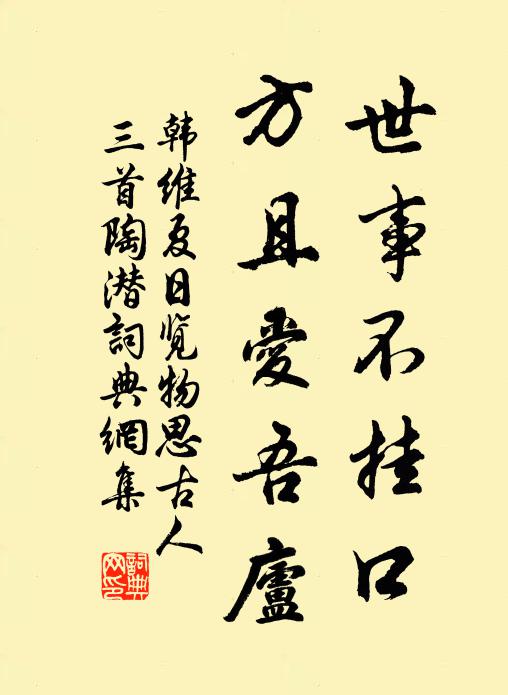 世事不挂口
方且愛吾廬
韩维夏日览物思古人
三首陶潜詞典網集
詞典网印